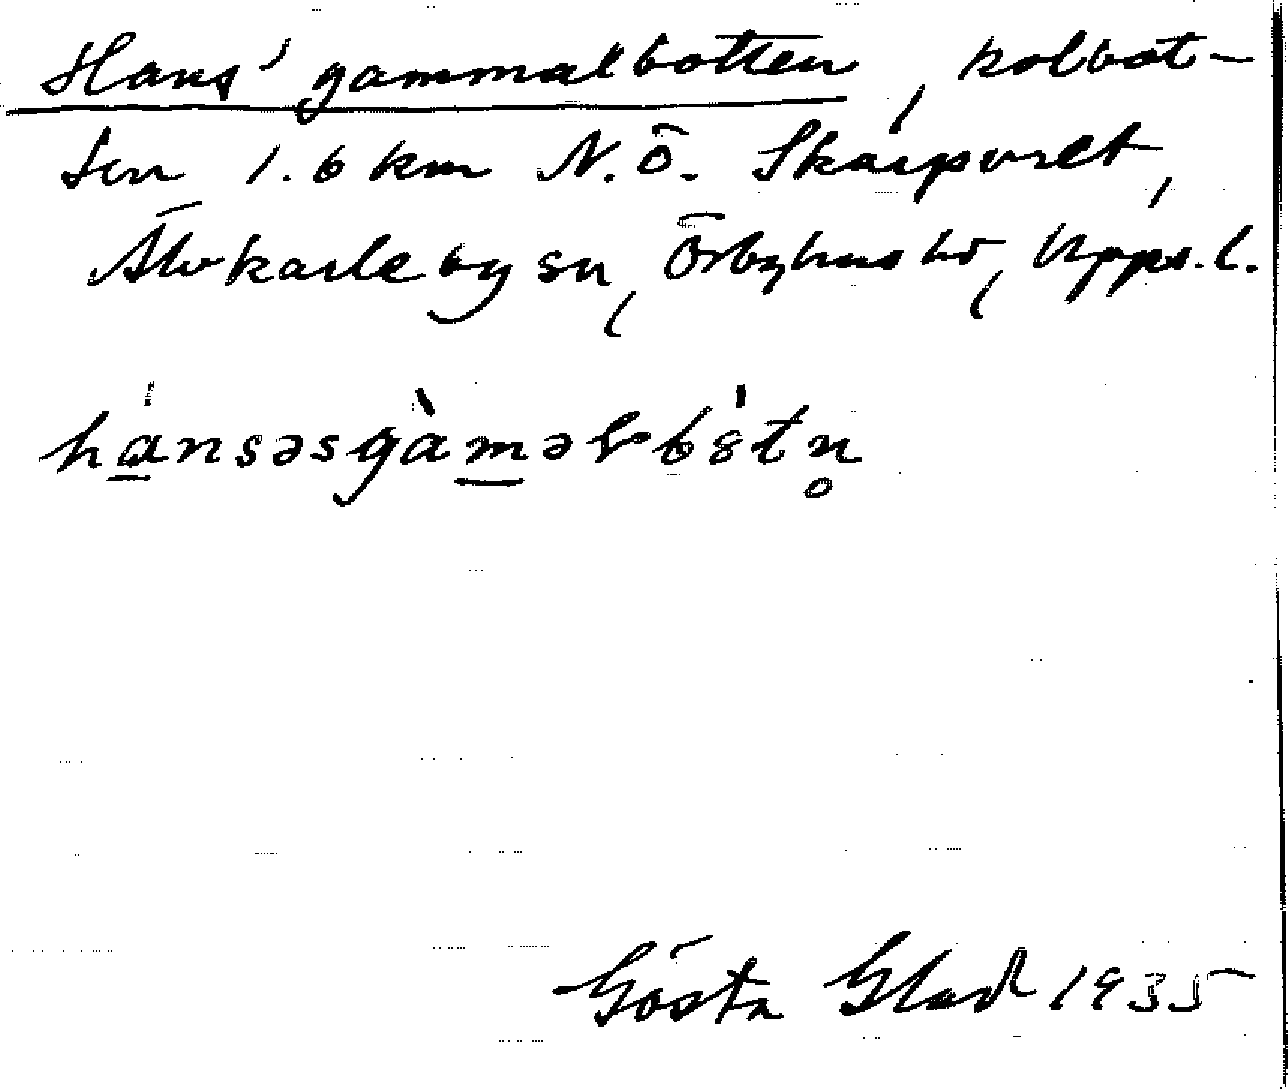 Hans' gammalbotten, kolbot-
ten 1.6 km N.Ö. Skärporet,
Älvkarleby sn, Örbyhus hd, Upps. l.
hánsəsgàməlbȯtn̥
Gösta Glad 1935